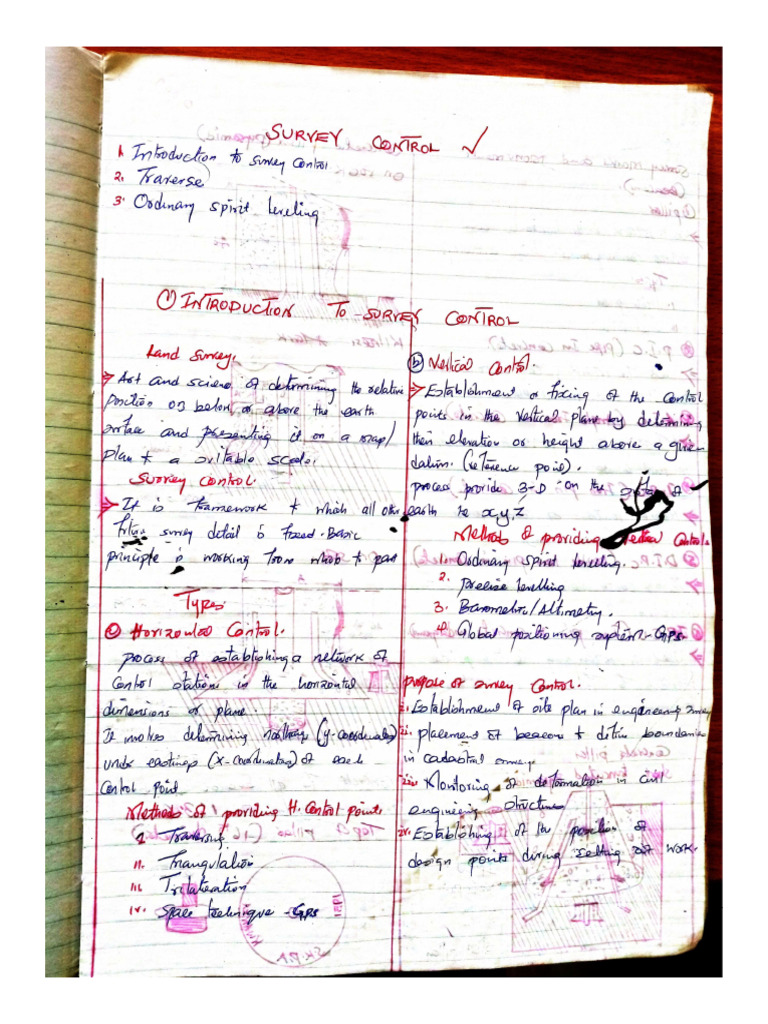 SURVEY CONTROL ✓
1. Introduction to Survey Control
2. Traverse
3. Ordinary spirit leveling
① INTRODUCTION TO SURVEY CONTROL
Land Survey.
Art and science of determining the relative
position on below or above the earth
surface and presenting it on a map/
plan to a suitable scale.
Survey control.
It is framework to which all other
survey detail is fixed. Basic
principle is working from whole to part
Types
Horizontal Control.
process of establishing a network of
control stations in the horizontal
dimensions or plane.
It involves determining northings (y-coordinates)
eastings (x-coordinates) of each
Control point
Methods of providing H. Control points
Traversing
ii. Triangulation
iii. Trilateration
iv. space technique - GPS
ⓑ Vertical Control.
Establishment or fixing of the control
points in the vertical plane by determining
their elevation or height above a given
datum. (reference point).
process provide 3-D on the
earth x,y,z
Methods of providing Control.
1. Ordinary spirit levelling.
2. precise levelling
3. Barometric/Altimetry.
4. Global positioning system - GPS.
purpose of survey control.
i. Establishment of site plan in engineering survey
ii. placement of beacons to define boundaries
in cadastral survey
iii. Monitoring of deformation in civil
engineering structures
iv. Establishing of position of
design points during setting out work.